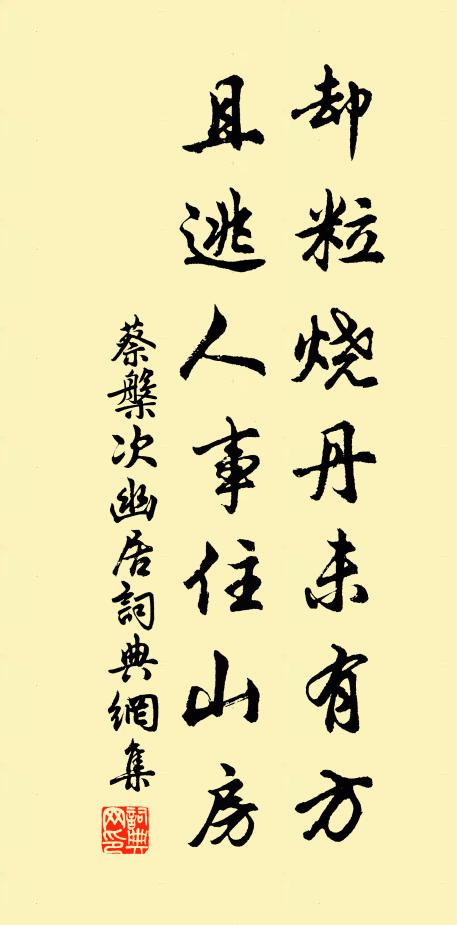 却粒烧丹未有方
且逃人事住山房
蔡槃次幽居詞典網集
詞典网印